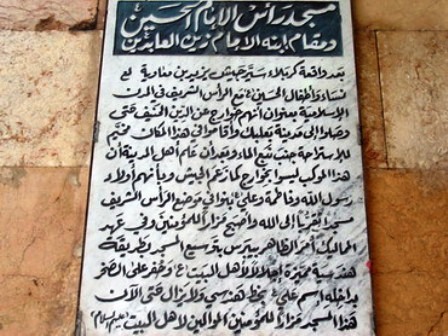 مسجد رأس الإمام الحسين
ومقام ابنه الإمام زين العابدين
بعد واقعة كربلاء سيّر جيش يزيد بن معاوية
نساء وأطفال الحسين ع مع الرأس الشريف في المدن
الإسلامية بعنوان أنهم خوارج عن الدين الحنيف حتى
وصلوا إلى مدينة بعلبك وأقاموا في هذا المكان مخيم
للإستراحة جنب نبع الماء وبعد أن علم أهل المدينة أن
هذا الموكب ليسوا بخوارج كما زعم الجيش وبأنهم أولاد
رسول الله وفاطمة وعلي ع بنوا في موضع الرأس الشريف
مسجدا تقربا إلى الله وأصبح مزارا للمؤمنين وفي عهد
المماليك أمر الظاهر بيبرس بتوسيع المسجد بطريقة
هندسية مميزة إجلالا لأهل البيت ع وحفر على الصخر
بداخله اسم علي ع بخط هندسي ولا يزال حتى الآن
هذا المسجد مزارا للمؤمنين الموالين لأهل البيت عليهم السلام